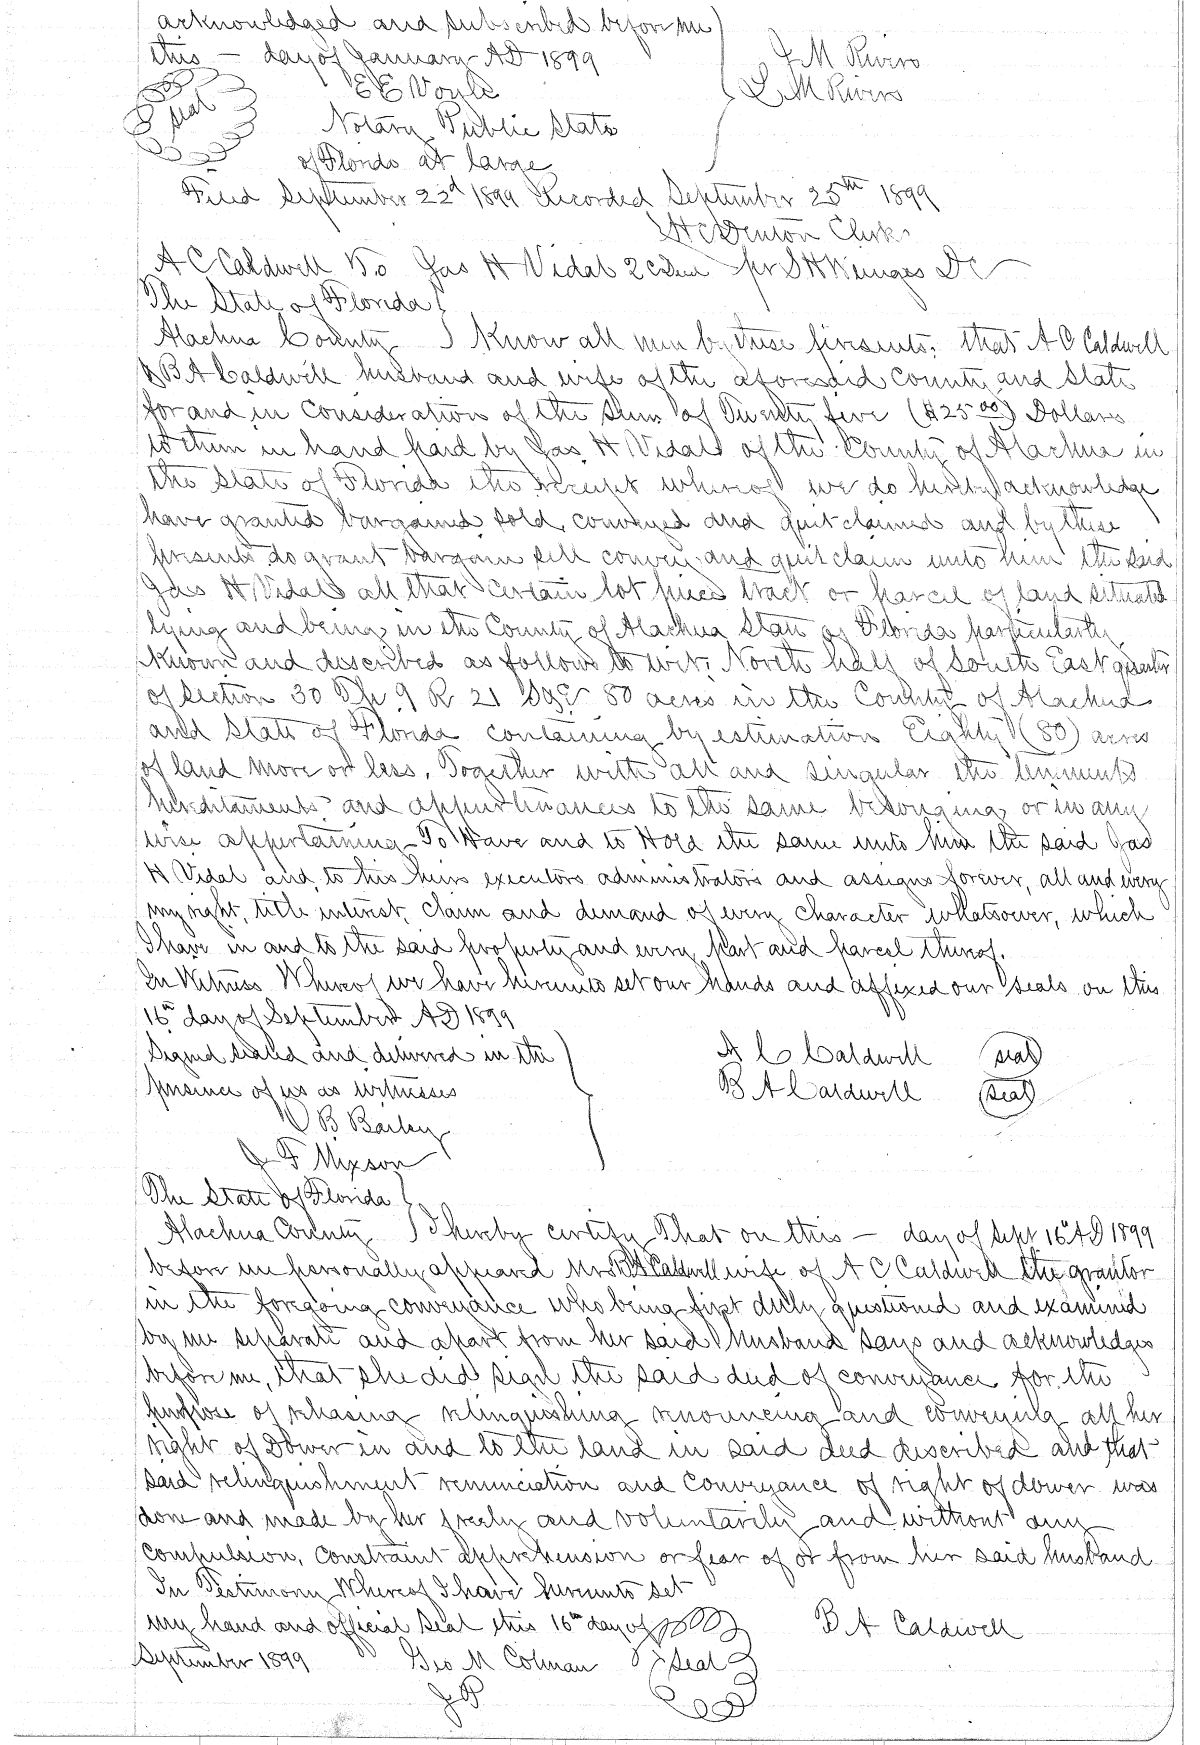 acknowledged and subscribed before me
this — day of January AD 1899
J M Rivers
L M Rivers
seal
E E Voyle
Notary Public State
of Florida at large
Filed September 22d 1899 Recorded September 25th 1899
H C Denton Clerk
A C Caldwell To Jas H Vidal 2 C Deed pr S H Wienges DC
The State of Florida
Alachua County Know all men by these presents, that A C Caldwell
& B A Caldwell husband and wife of the aforesaid County and State
for and in consideration of the sum of Twenty five ($25.00) Dollars
to them in hand paid by Jas H Vidal of the County of Alachua in
the State of Florida the receipt whereof we do hereby acknowledge
have granted bargained sold, conveyed and quit claimed and by these
presents do grant bargain sell convey and quit claim unto him the said
Jas H Vidal all that certain lot piece tract or parcel of land situate
lying and being in the County of Alachua State of Florida particularly
known and described as follows to wit: North half of South East quarter
of Section 30 Tp 9 R 21 S & E 80 acres in the County of Alachua
and State of Florida containing by estimation Eighty (80) acres
of land more or less. Together with all and singular the tenements
hereditaments and appurtenances to the same belonging or in any
wise appertaining To Have and to Hold the same unto him the said Jas
H Vidal and to his heirs executors administrators and assigns forever, all and every
my right, title interest, claim and demand of every character whatsoever, which
I have in and to the said property and every part and parcel thereof.
In Witness Whereof we have hereunto set our hands and affixed our seals on this
16th day of September AD 1899
Signed sealed and delivered in the
presence of us as witnesses
A C Caldwell seal
B A Caldwell seal
B Bailey
J F Mixson
The State of Florida
Alachua County I hereby certify That on this — day of Sept 16th AD 1899
before me personally appeared Mrs B A Caldwell wife of A C Caldwell the grantor
in the foregoing conveyance who being first duly questioned and examined
by me separate and apart from her said husband says and acknowledges
before me, that she did sign the said deed of conveyance for the
purpose of releasing relinquishing renouncing and conveying all her
right of Dower in and to the land in said deed described and that
said relinquishment renunciation and conveyance of right of dower was
done and made by her freely and voluntarily and without any
compulsion, constraint apprehension or fear of or from her said husband
In Testimony Whereof I have hereunto set
my hand and official seal this 16th day of
September 1899
B A Caldwell
Geo M Colman
seal
J P